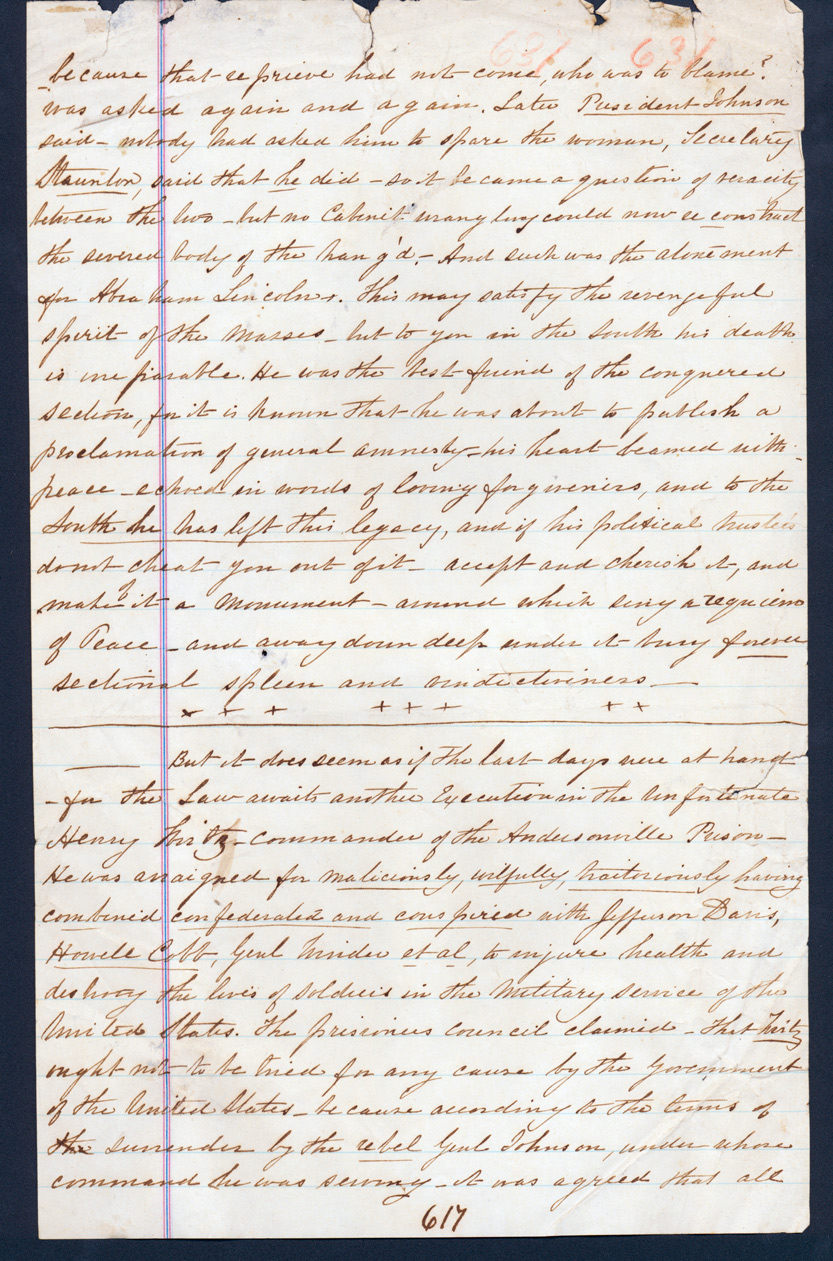 631 631
because that reprieve had not come, who was to blame?
was asked again and again. Later President Johnson
said - nobody had asked him to spare the woman, Secretary
Staunton, said that he did - so it became a question of veracity
between the two - but no Cabinet wrangling could now reconstruct
the severed body of the hang'd. - And such was the atonement
for Abraham Lincoln. This may satisfy the revengeful
spirit of the masses - but to you in the South his death
is irreparable. He was the best friend of the conquered
section, for it is known that he was about to publish a
proclamation of general amnesty - his heart beamed with
peace - echoed in words of loving forgiveness, and to the
South he has left this legacy, and if his political trustees
do not cheat you out of it - accept and cherish it, and
make of it a Monument - around which sing a requiem
of Peace - and away down deep under it bury forever
sectional spleen and vindictiveness -
x + + + + + + +
But it does seem as if the last days were at hand
- for the Law awaits another Execution in the unfortunate
Henry Wirtz - commander of the Andersonville Prison -
He was arraigned for maliciously, wilfully, traitoriously having
combined confederated and conspired with Jefferson Davis,
Howell Cobb, Genl Winder et al, to injure health and
destroy the lives of soldiers in the Military service of the
United States. The prisoners council claimed - that Wirtz
ought not to be tried for any cause by the Government
of the United States - because according to the terms of
the surrender by the rebel Genl Johnson, under whose
command he was serving - it was agreed that all
617